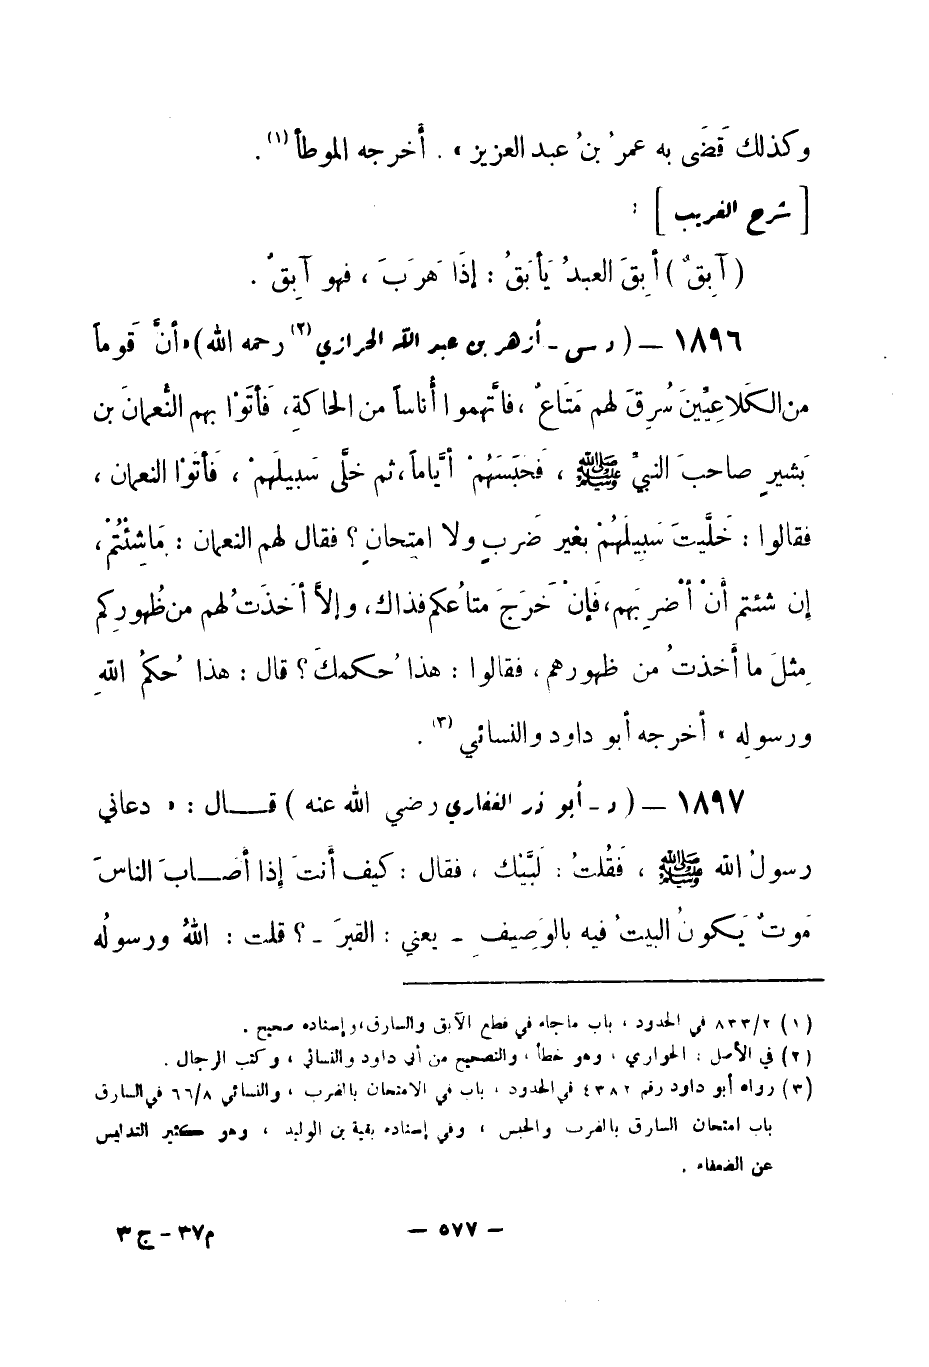 وكذلك قَضَى به عمرُ بنُ عبد العزيز » . أخرجه الموطأ (١) .
[ شرح الغريب ] :
( آبِقٌ ) أبِقَ العبدُ يَأبَقُ : إذَا هَرَبَ ، فهو آبِقٌ .
١٨٩٦ – ( د س - أزهر بن عبد الله الحرازي (٢) رحمه الله ) « أنَّ قَوماً
من الكَلاعِيِّينَ سُرِقَ لهم مَتَاعٌ ، فاتَّهموا أُناساً من الحاكةِ ، فَأتَوْا بهم النُّعمانَ بن
بَشيرٍ صاحبَ النبيِّ ﷺ ، فَحَبَسَهُمْ أيَّاماً ، ثم خلَّى سَبيلَهمْ ، فَأتَوْا النعمان ،
فقالوا : خَلَّيتَ سَبِيلَهُمْ بغير ضَربٍ ولا امتِحانٍ ؟ فقال لهم النعمان : مَاشِئْتُمْ ،
إن شئتم أنْ أضْرِبَهم ، فَإنْ خَرَجَ متاعُكم فذاك ، وإلاَّ أخَذتُ لهم من ظُهورِكم
مِثلَ ما أخذتُ من ظهورهم ، فقالوا : هذا حُكمكَ ؟ قال : هذا حُكمُ اللهِ
ورسولِه » أخرجه أبو داود والنسائي (٣) .
١٨٩٧ – ( د - أبو ذر الغفاري رضي الله عنه ) قــال : « دعاني
رسولُ الله ﷺ ، فَقُلتُ : لَبَّيْك ، فقال : كيف أنتَ إذا أصَــابَ الناسَ
مَوتٌ يَكونُ البيتُ فيه بالوَصِيفِ - يعني : القبرَ - ؟ قلت : اللهُ ورسولُه
(١) ٨٣٣/٢ في الحدود ، باب ماجاء في قطع الآبق والسارق ، وإسناده صحيح .
(٢) في الأصل : الحواري ، وهو خطأ ، والتصحيح من أبي داود والنسائي ، وكتب الرجال .
(٣) رواه أبو داود رقم ٤٣٨٢ في الحدود ، باب في الامتحان بالضرب ، والنسائي ٦٦/٨ في السارق
باب امتحان السارق بالضرب والحبس ، وفي إسناده بقية بن الوليد ، وهو كثير التدليس
عن الضعفاء .
– ٥٧٧ –
م٣٧ - ج ٣